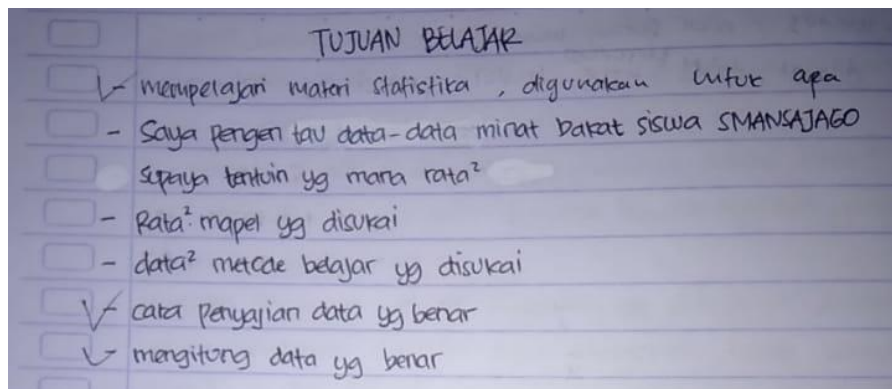 TUJUAN BELAJAR
✓- mempelajari materi statistika, digunakan untuk apa
- Saya pengen tau data-data minat bakat siswa SMANSAJAGO
supaya tentuin yg mana rata²
- Rata² mapel yg disukai
- data² metode belajar yg disukai
✓- cara penyajian data yg benar
✓- mengitung data yg benar